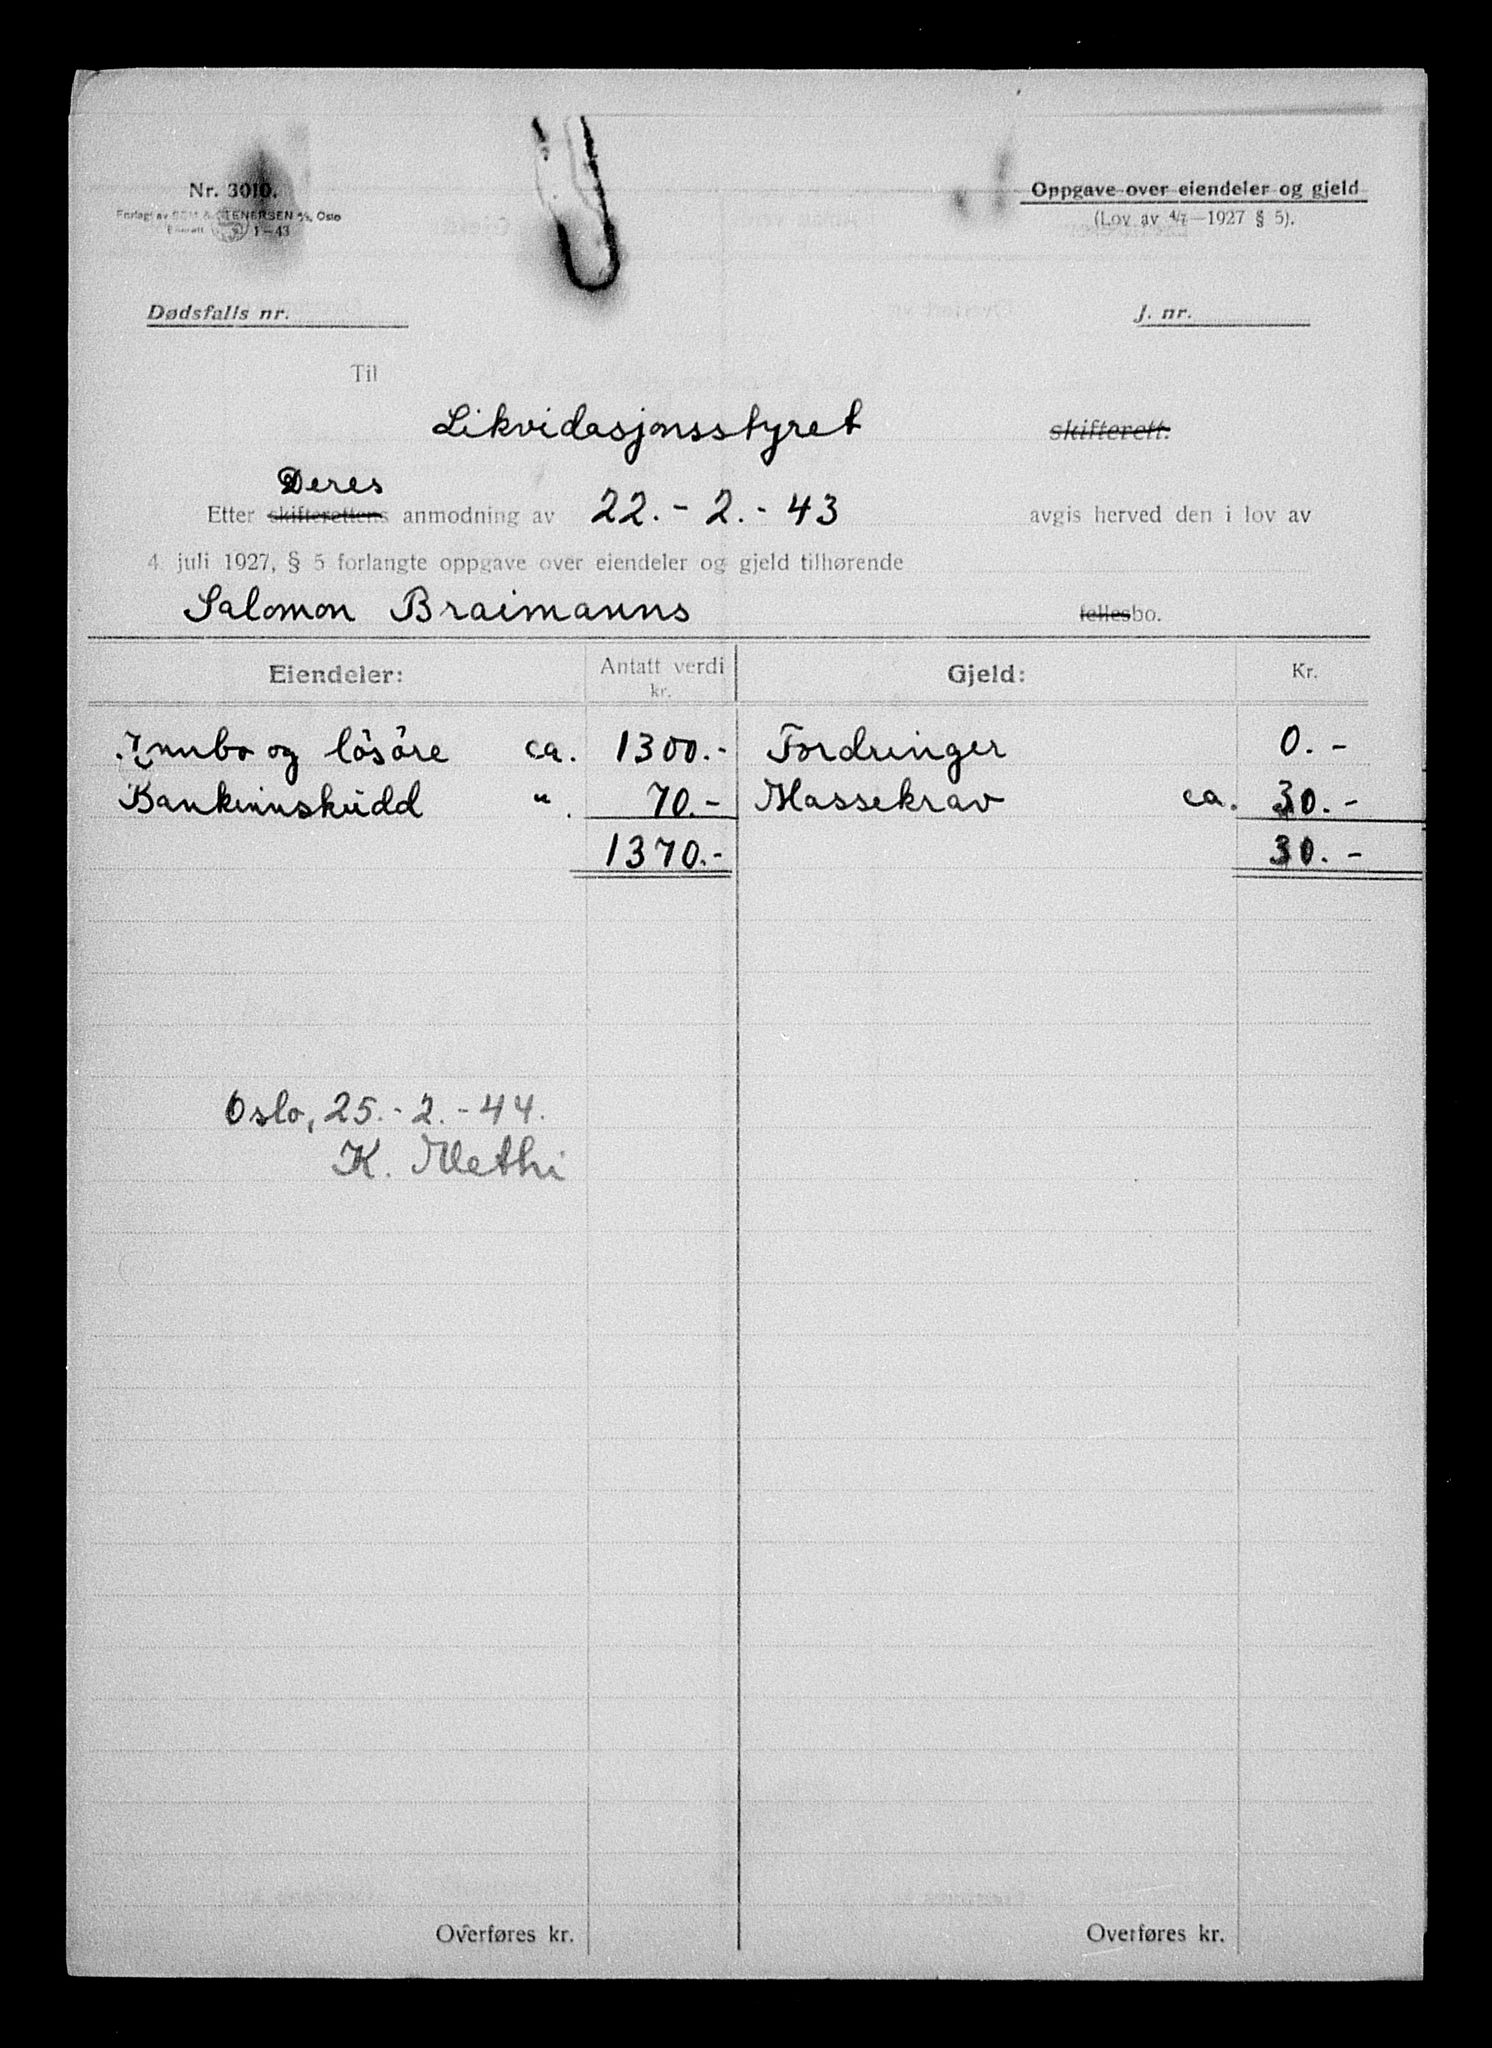 Nr. 3010.
Forlagt av SEM & STENERSEN A/S, Oslo
1-43
Oppgave over eiendeler og gjeld
(Lov av 4/7—1927 § 5).
Dødsfalls nr.
J. nr.
Til
Likvidasjonsstyret skifterett.
Deres
Etter skifterettens anmodning av 22.-2.-43 avgis herved den i lov av
4. juli 1927, § 5 forlangte oppgave over eiendeler og gjeld tilhørende
Salomon Braimanns fellesbo.
Eiendeler: Antatt verdi kr. Gjeld: Kr.
Innbo og lösöre ca. 1300.- Fordringer 0.-
Bankinnskudd " 70.- Massekrav ca. 30.-
1370.- 30.-
Oslo, 25.-2.-44.
K. Methi
Overføres kr. Overføres kr.